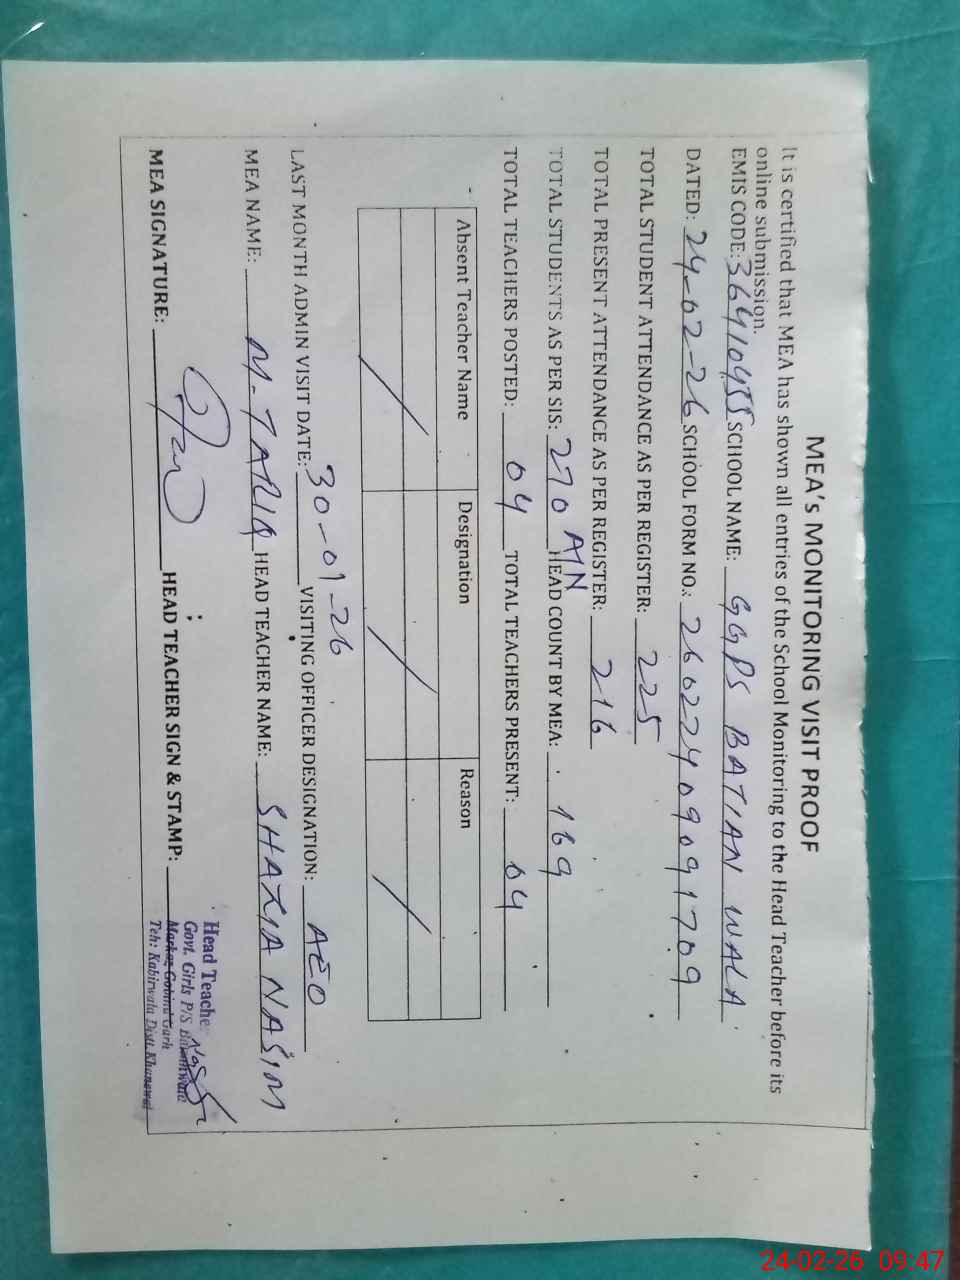 MEA's MONITORING VISIT PROOF
It is certified that MEA has shown all entries of the School Monitoring to the Head Teacher before its
online submission.
EMIS CODE: 36410455 SCHOOL NAME: GGPS BATIAN WALA
DATED: 24-02-26 SCHOOL FORM NO.: 26022409091709
TOTAL STUDENT ATTENDANCE AS PER REGISTER: 225
TOTAL PRESENT ATTENDANCE AS PER REGISTER: 216
TOTAL STUDENTS AS PER SIS: 270 HEAD COUNT BY MEA: 169
TOTAL TEACHERS POSTED: 04 TOTAL TEACHERS PRESENT: 04
Absent Teacher Name Designation Reason
LAST MONTH ADMIN VISIT DATE: 30-01-26 VISITING OFFICER DESIGNATION: AEO
MEA NAME: M. TARIQ HEAD TEACHER NAME: SHAZIA NASIM
MEA SIGNATURE: HEAD TEACHER SIGN & STAMP:
Head Teacher
Govt. Girls P/S
Markaz Gobind Garh
Teh: Kabirwala Distt. Khanewal
24-02-26 09:47